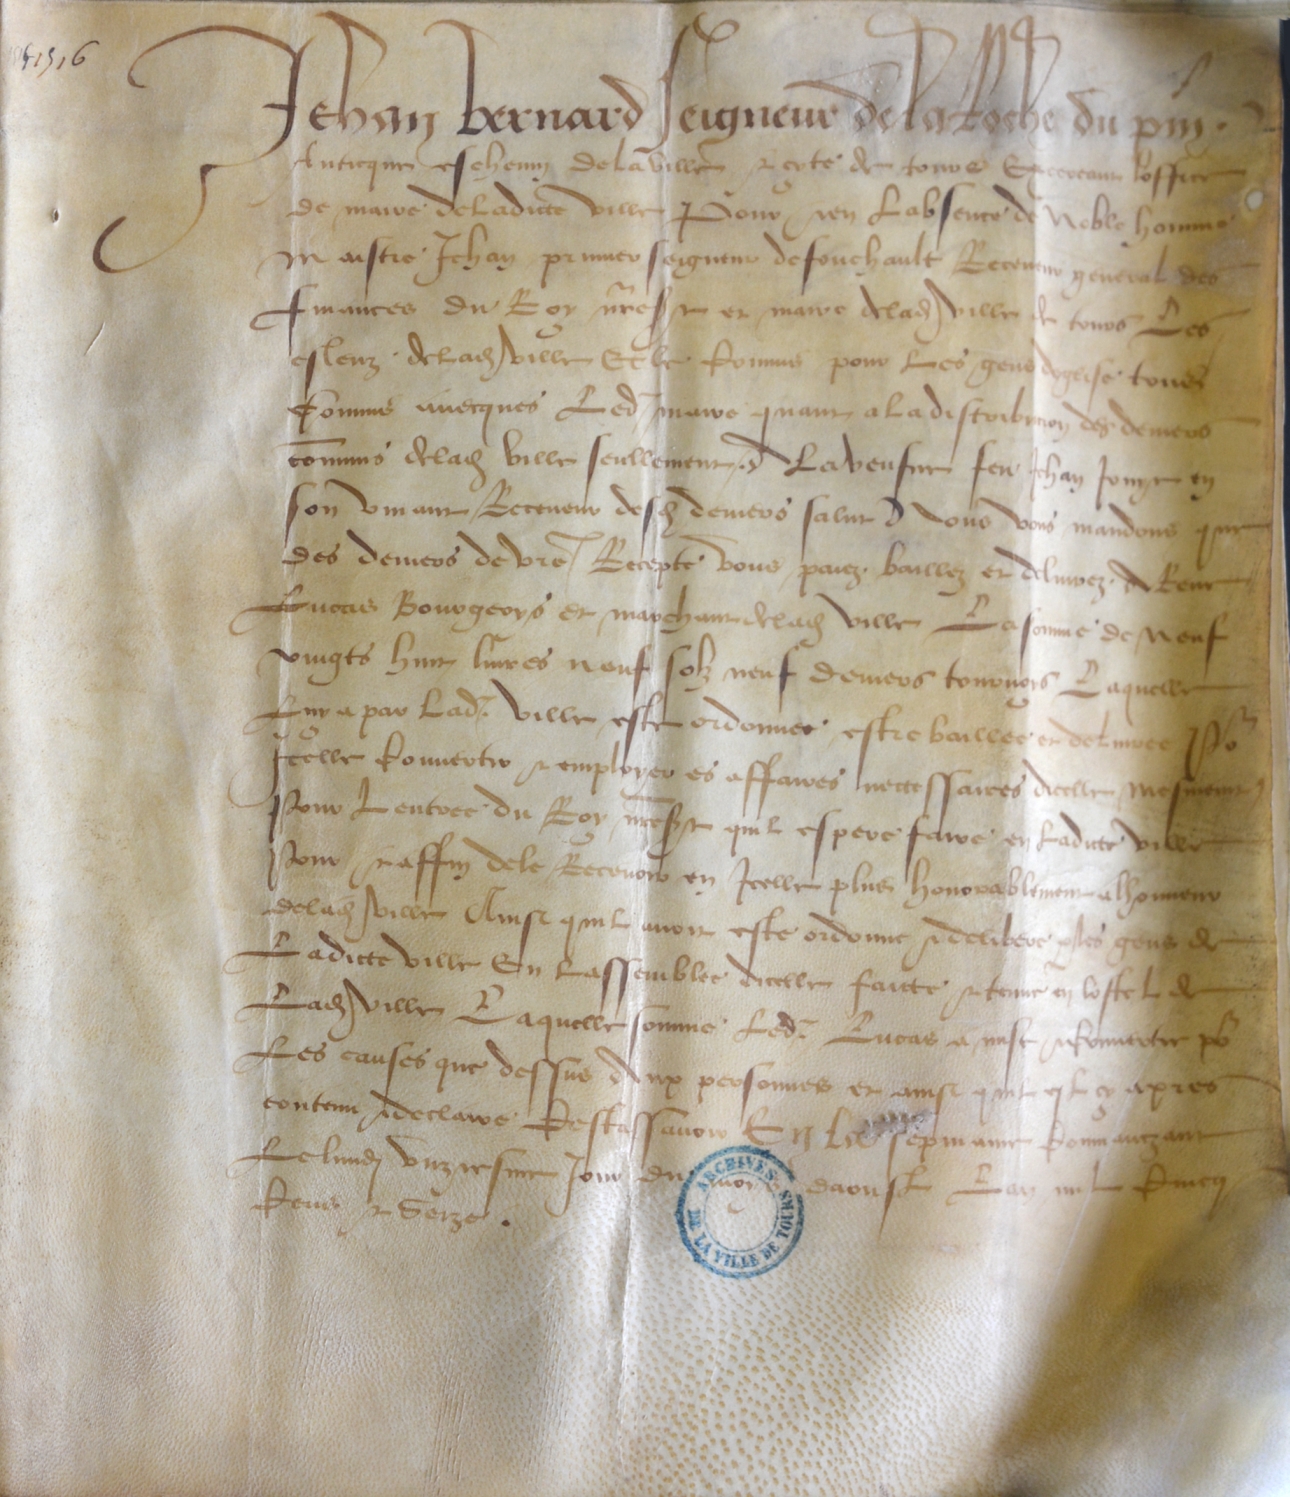 1516
Jehan bernard seigneur de la Roche du pin
Anticque eschevin de la ville & cite de tours Exerceant loffice
de maire de ladicte ville Pour & en Labsence de Noble homme
Maistre Jehan prunier seigneur de fouchault Receveur general des
finances du Roy nre sr et maire de lad ville de tours Les
esleuz de lad ville Et le Commis pour Les gens deglise tous
Commis avecques Led maire quant a La distribucion des deniers
communs de lad ville seullement A La veufve feu Jehan en
son vivant Receveur desd deniers salut Nous vous mandons que
des deniers de vre Recepte vous paiez baillez et delivrez A Rene
Lucas Bourgeoys et marchant de lad ville La somme de Neuf
vingts huit livres neuf solz neuf deniers tournoys Laquelle
Luy a par Lad ville este ordonnee estre baillee et delivree Po
Icelle Convertir & employer es affaires neccessaires dicelle mesment
Pour Lentree du Roy nre sr quil espere faire en Ladicte ville
Pour & affin de le Recevoir en Icelle plus honorablement a lhonneur
de lad ville Ainsi quil avoit este ordonne & delibere p les gens de
Ladicte ville En Lassemblee dicelle faicte & tenue en lostel de
Lad ville Laquelle somme Led Lucas a mise & convertie po
Les causes que dessus Aux personnes et ainsi quil est cy apres
contenu & declaire Cestassavoir En La sepmaine Commanczant
Le lundi unziesme Jour du moys daoust Lan mil Cincq
Cens & Seize.
ARCHIVES DE LA VILLE DE TOURS